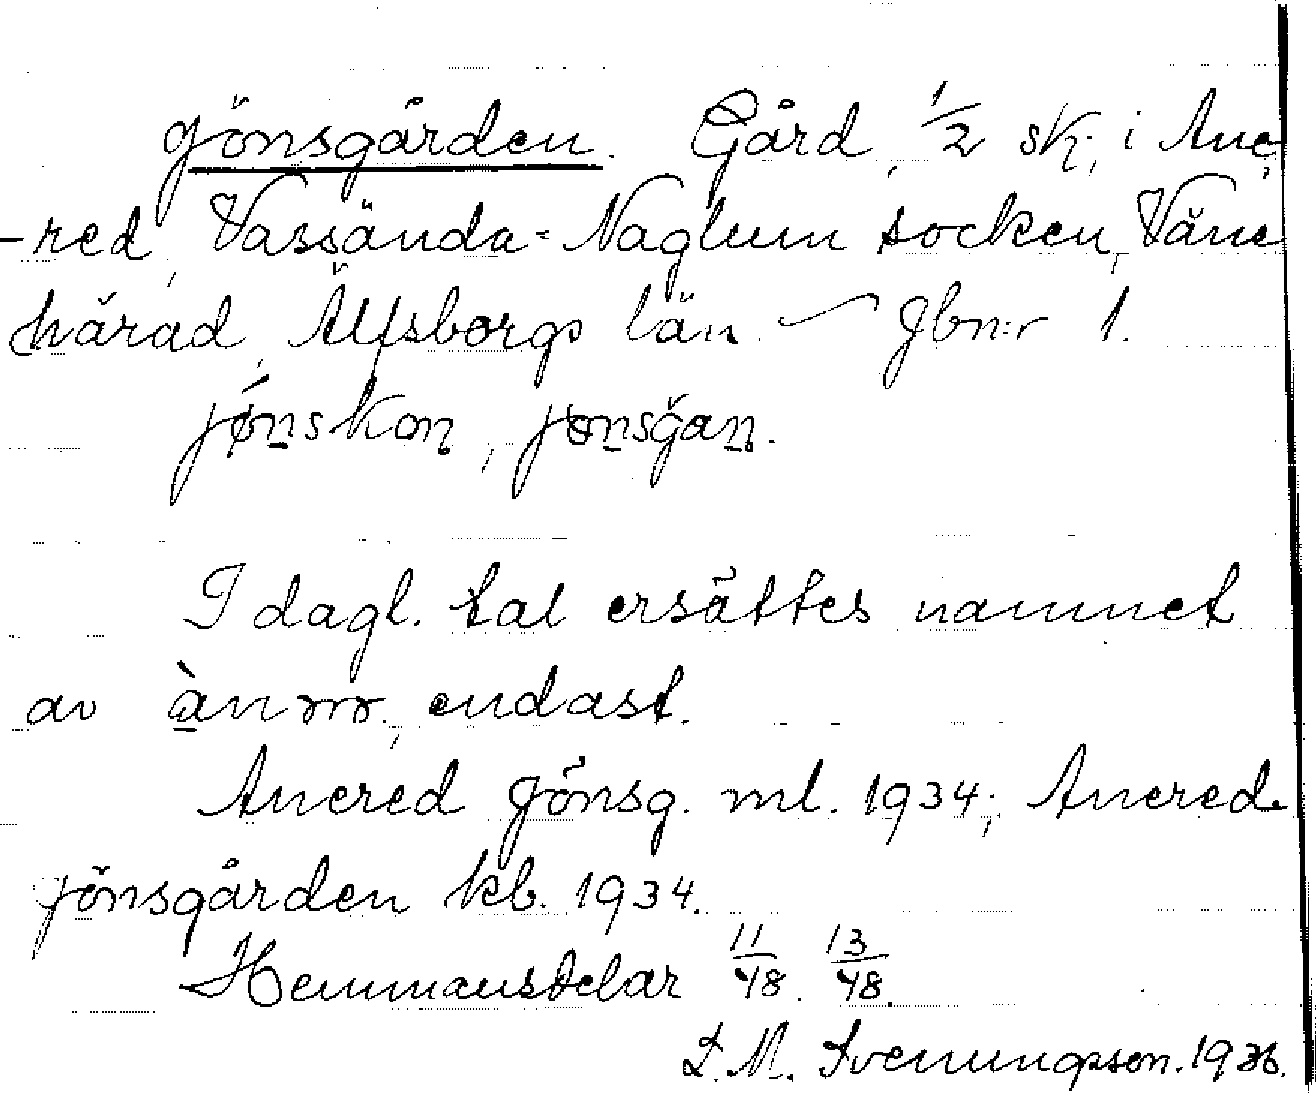 Jönsgården. Gård, 1/2 sk., i Ane-
-red, Vassända-Naglum socken, Väne
härad, Älfsborgs län. – Jbn:r 1.
jǿnskon, jønsgan.
I dagl. tal ersättes namnet
av ànrrr, endast.
Anered Jönsg. ml. 1934; Anered
Jönsgården kb. 1934.
Hemmansdelar 11/48. 13/48.
L. M. Svenungsson. 1936.